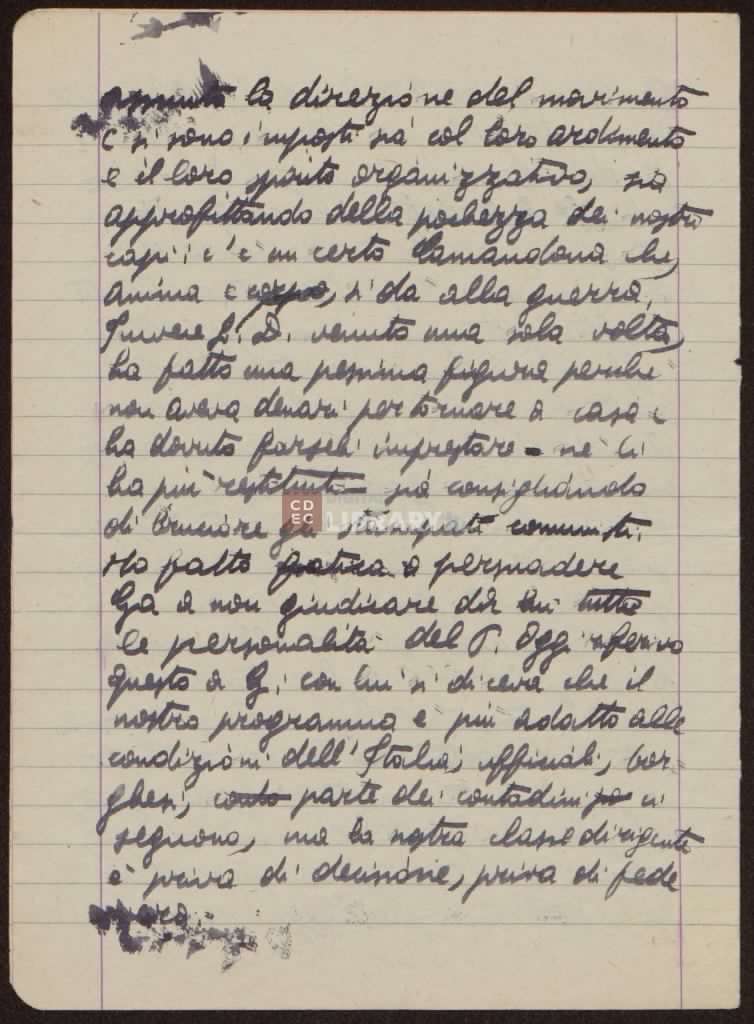 assunto la direzione del movimento
e si sono imposti sia col loro ardimento
e il loro spirito organizzativo, sia
approfittando della pochezza dei nostri
capi; c'è un certo Camandona che,
anima e corpo, si dà alla guerra,
Invece L. D. venuto una sola volta,
ha fatto una pessima figura perché
non aveva denari per tornare a casa e
ha dovuto farseli imprestare - né li
ha più restituiti - sia consigliando
di bruciare gli stampati comunisti.
Ho fatto fatica a persuadere
Ga a non giudicare da lui tutte
le personalità del P. Oggi riferivo
questo a G. i con lui si diceva che il
nostro programma è più adatto alle
condizioni dell'Italia; ufficiali, bor-
ghesi, parte dei contadini ci
seguono, ma la nostra classe dirigente
è priva di decisione, priva di fede
CDEC
LIBRARY